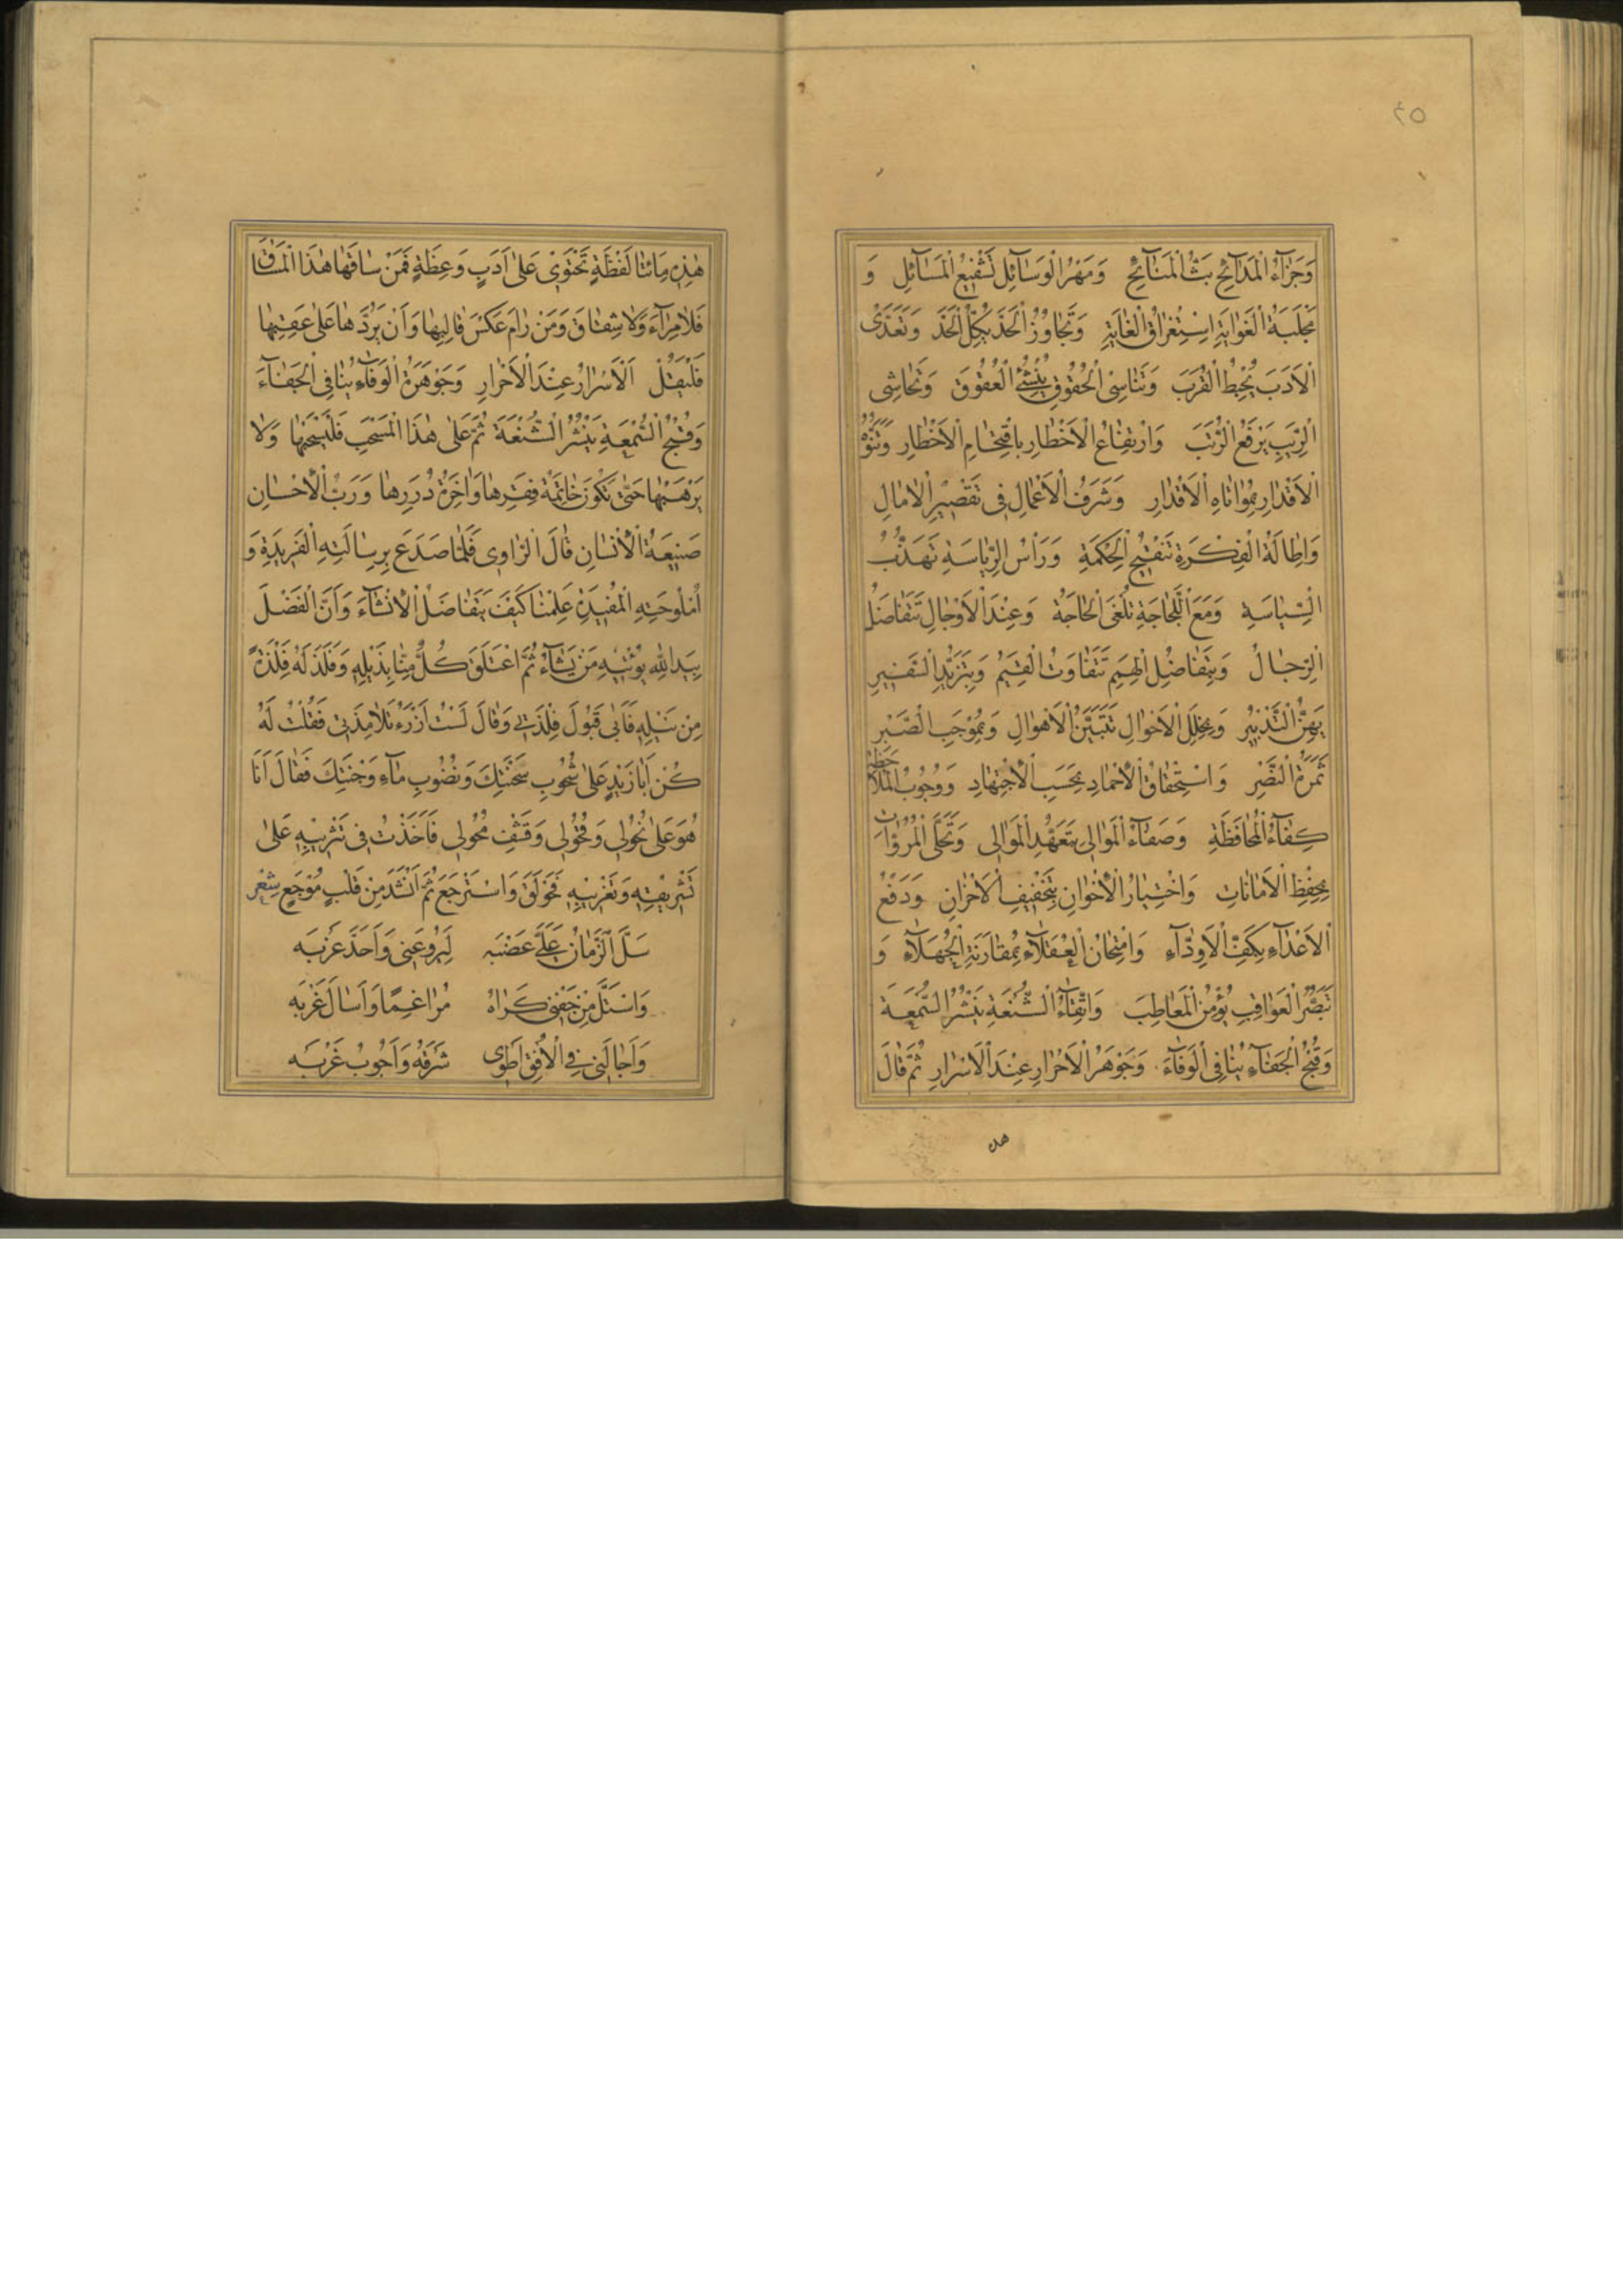 ٢٥
وَجَزَآءُ الْمَدَآئِحِ بَثُّ الْمَنَآئِحِ وَمَهْرُ الْوَسَآئِلِ تَشْفِيعُ الْمَسَآئِلِ وَ
مَجْلَبَةُ الْغَوَايَةِ اِسْتِغْرَاقُ الْغَايَةِ وَتَجَاوُزُ الْحَدِّ يُكِلُّ الْحَدَّ وَتَعَدِّى
الْاَدَبِ يُحْبِطُ الْقُرَبَ وَتَنَاسِى الْحُقُوقِ يُنْشِئُ الْعُقُوقَ وَتَحَاشِى
الرِّيَبِ يَرْفَعُ الرُّتَبَ وَارْتِفَاعُ الْاَخْطَارِ بِاقْتِحَامِ الْاَخْطَارِ وَتَنَوُّهُ
الْاَقْدَارِ بِمُوَاتَاةِ الْاَقْدَارِ وَشَرَفُ الْاَعْمَالِ فِى تَقْصِيرِ الْاٰمَالِ
وَاِطَالَةُ الْفِكْرَةِ تَنْقِيحُ الْحِكْمَةِ وَرَأْسُ الرِّيَاسَةِ تَهَذُّبُ
السِّيَاسَةِ وَمَعَ اللَّجَاجَةِ تُلْغَى الْحَاجَةُ وَعِنْدَ الْاَوْجَالِ تَتَفَاضَلُ
الرِّجَالُ وَبِتَفَاضُلِ الْهِمَمِ تَتَفَاوَتُ الْقِيَمُ وَبِتَزَيُّدِ السَّفِيرِ
يَهِنُ التَّدْبِيرُ وَبِخَلَلِ الْاَحْوَالِ تَتَبَيَّنُ الْاَهْوَالُ وَبِمُوجَبِ الصَّبْرِ
ثَمَرَةُ النَّصْرِ وَاسْتِحْقَاقُ الْاِحْمَادِ بِحَسَبِ الْاِجْتِهَادِ وَوُجُوبُ الْمُلَاحَظَةِ
كِفَآءُ الْمُحَافَظَةِ وَصَفَآءُ الْمَوَالِى بِتَعَهُّدِ الْمَوَالِى وَتَحَلِّى الْمُرُوْاٰتِ
بِحِفْظِ الْاَمَانَاتِ وَاخْتِبَارُ الْاِخْوَانِ بِتَخْفِيفِ الْاَحْزَانِ وَدَفْعُ
الْاَعْدَآءِ بِكَفِّ الْاَوِدَّآءِ وَامْتِحَانُ الْعُقَلَآءِ بِمُقَارَنَةِ الْجُهَلَآءِ وَ
تَبَصُّرُ الْعَوَاقِبِ يُؤْمِنُ الْمَعَاطِبَ وَاتِّقَآءُ الشُّنْعَةِ يَنْشُرُ السُّمْعَةَ
وَقُبْحُ الْجَفَآءِ يُنَافِى الْوَفَآءَ وَجَوْهَرُ الْاَحْرَارِ عِنْدَ الْاَسْرَارِ ثُمَّ قَالَ
هذه
هٰذِهِ مِائَتَا لَفْظَةٍ تَحْتَوِى عَلَى اَدَبٍ وَعِظَةٍ فَمَنْ سَاقَهَا هٰذَا الْمَسَاقَ
فَلَا مِرَآءَ وَلَا شِقَاقَ وَمَنْ رَامَ عَكْسَ قَالِبِهَا وَاَنْ يَرُدَّهَا عَلَى عَقِبِهَا
فَلْيَقُلْ اَلْاَسْرَارُ عِنْدَ الْاَحْرَارِ وَجَوْهَرُ الْوَفَآءِ يُنَافِى الْجَفَآءَ
وَقُبْحُ السُّمْعَةِ يَنْشُرُ الشُّنْعَةَ ثُمَّ عَلَى هٰذَا الْمَسْحَبِ فَلْيَسْحَبْهَا وَلَا
يَرْهَبْهَا حَتَّى تَكُونَ خَاتِمَةُ فِقَرِهَا وَاٰخِرَةُ دُرَرِهَا وَرَبُّ الْاِحْسَانِ
صَنِيعَةُ الْاِنْسَانِ قَالَ الرَّاوِى فَلَمَّا صَدَعَ بِرِسَالَتِهِ الْفَرِيدَةِ وَ
اُمْلُوحَتِهِ الْمُفِيدَةِ عَلِمْنَا كَيْفَ يَتَفَاضَلُ الْاِنْشَآءُ وَاَنَّ الْفَضْلَ
بِيَدِ اللّٰهِ يُؤْتِيهِ مَنْ يَشَآءُ ثُمَّ اعْتَلَقَ كُلٌّ مِنَّا بِذَيْلِهِ وَفَلَذَ لَهُ فِلْذَةً
مِنْ نَيْلِهِ فَاَبَى قَبُولَ فِلْذَتِى وَقَالَ لَسْتُ اَرْزَءُ تَلَامِذَتِى فَقُلْتُ لَهُ
كُنْ اَبَا زَيْدٍ عَلَى شُحُوبِ سَحْنَتِكَ وَنُضُوبِ مَآءِ وَجْنَتِكَ فَقَالَ اَنَا
هُوَ عَلَى نُحُولِى وَقُحُولِى وَقَشَفِ مُحُولِى فَاَخَذْتُ فِى تَثْرِيبِهِ عَلَى
تَشْرِيقِهِ وَتَغْرِيبِهِ فَحَوْلَقَ وَاسْتَرْجَعَ ثُمَّ اَنْشَدَ مِنْ قَلْبٍ مُوْجَعٍ شِعْر
سَلَّ الزَّمَانُ عَلَىَّ عَضْبَهْ لِيَرُوعَنِى وَاَحَدَّ غَرْبَهْ
وَاسْتَلَّ مِنْ جَفْنِى كَرَاهُ مُرَاغِمًا وَاَسَالَ غَرْبَهْ
وَاَجَالَنِى فِى الْاُفْقِ اَطْوِى شَرْقَهُ وَاَجُوبُ غَرْبَهْ